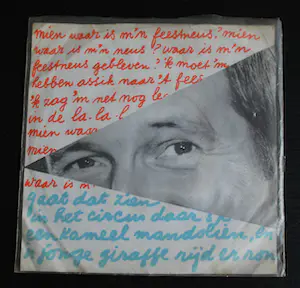 mien waar is m'n feestneus? mien
waar is m'n neus? waar is m'n
feestneus gebleven? 'k moet 'm
hebben assik naar 't fees
'k zag 'm net nog le
in de la-la-l
mien waar
mien
waar is m
gaat dat zien
in het circus daar s
een kameel mandolien, en
'n jonge giraffe rijd er ron